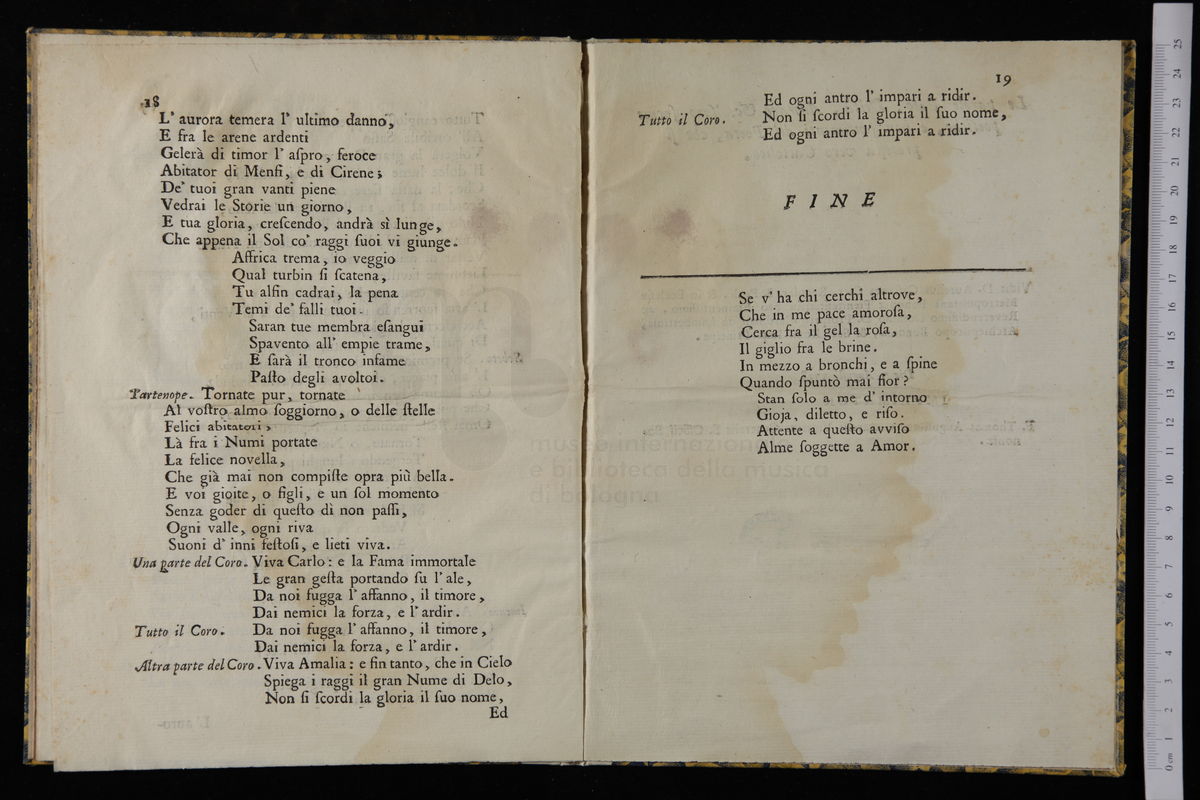 18
L' aurora temera l' ultimo danno,
E fra le arene ardenti
Gelerà di timor l' aſpro, feroce
Abitator di Menfi, e di Cirene;
De' tuoi gran vanti piene
Vedrai le Storie un giorno,
E tua gloria, creſcendo, andrà sì lunge,
Che appena il Sol co' raggi ſuoi vi giunge.
Affrica trema, io veggio
Qual turbin ſi ſcatena,
Tu alfin cadrai, la pena
Temi de' falli tuoi.
Saran tue membra eſangui
Spavento all' empie trame,
E ſarà il tronco infame
Paſto degli avoltoi.
Partenope. Tornate pur, tornate
Al voſtro almo ſoggiorno, o delle ſtelle
Felici abitatori,
Là fra i Numi portate
La felice novella,
Che già mai non compiſte opra più bella.
E voi gioite, o figli, e un ſol momento
Senza goder di queſto dì non paſſi,
Ogni valle, ogni riva
Suoni d' inni feſtoſi, e lieti viva.
Una parte del Coro. Viva Carlo: e la Fama immortale
Le gran geſta portando ſu l' ale,
Da noi fugga l' affanno, il timore,
Dai nemici la forza, e l' ardir.
Tutto il Coro. Da noi fugga l' affanno, il timore,
Dai nemici la forza, e l' ardir.
Altra parte del Coro. Viva Amalia: e fin tanto, che in Cielo
Spiega i raggi il gran Nume di Delo,
Non ſi ſcordi la gloria il ſuo nome,
Ed
19
Ed ogni antro l' impari a ridir.
Tutto il Coro. Non ſi ſcordi la gloria il ſuo nome,
Ed ogni antro l' impari a ridir.
FINE
Se v' ha chi cerchi altrove,
Che in me pace amoroſa,
Cerca fra il gel la roſa,
Il giglio fra le brine.
In mezzo a bronchi, e a ſpine
Quando ſpuntò mai fior?
Stan ſolo a me d' intorno
Gioja, diletto, e riſo.
Attente a queſto avviſo
Alme ſoggette a Amor.
museo internazionale
e biblioteca della musica
di bologna
0 cm 1 2 3 4 5 6 7 8 9 10 11 12 13 14 15 16 17 18 19 20 21 22 23 24 25